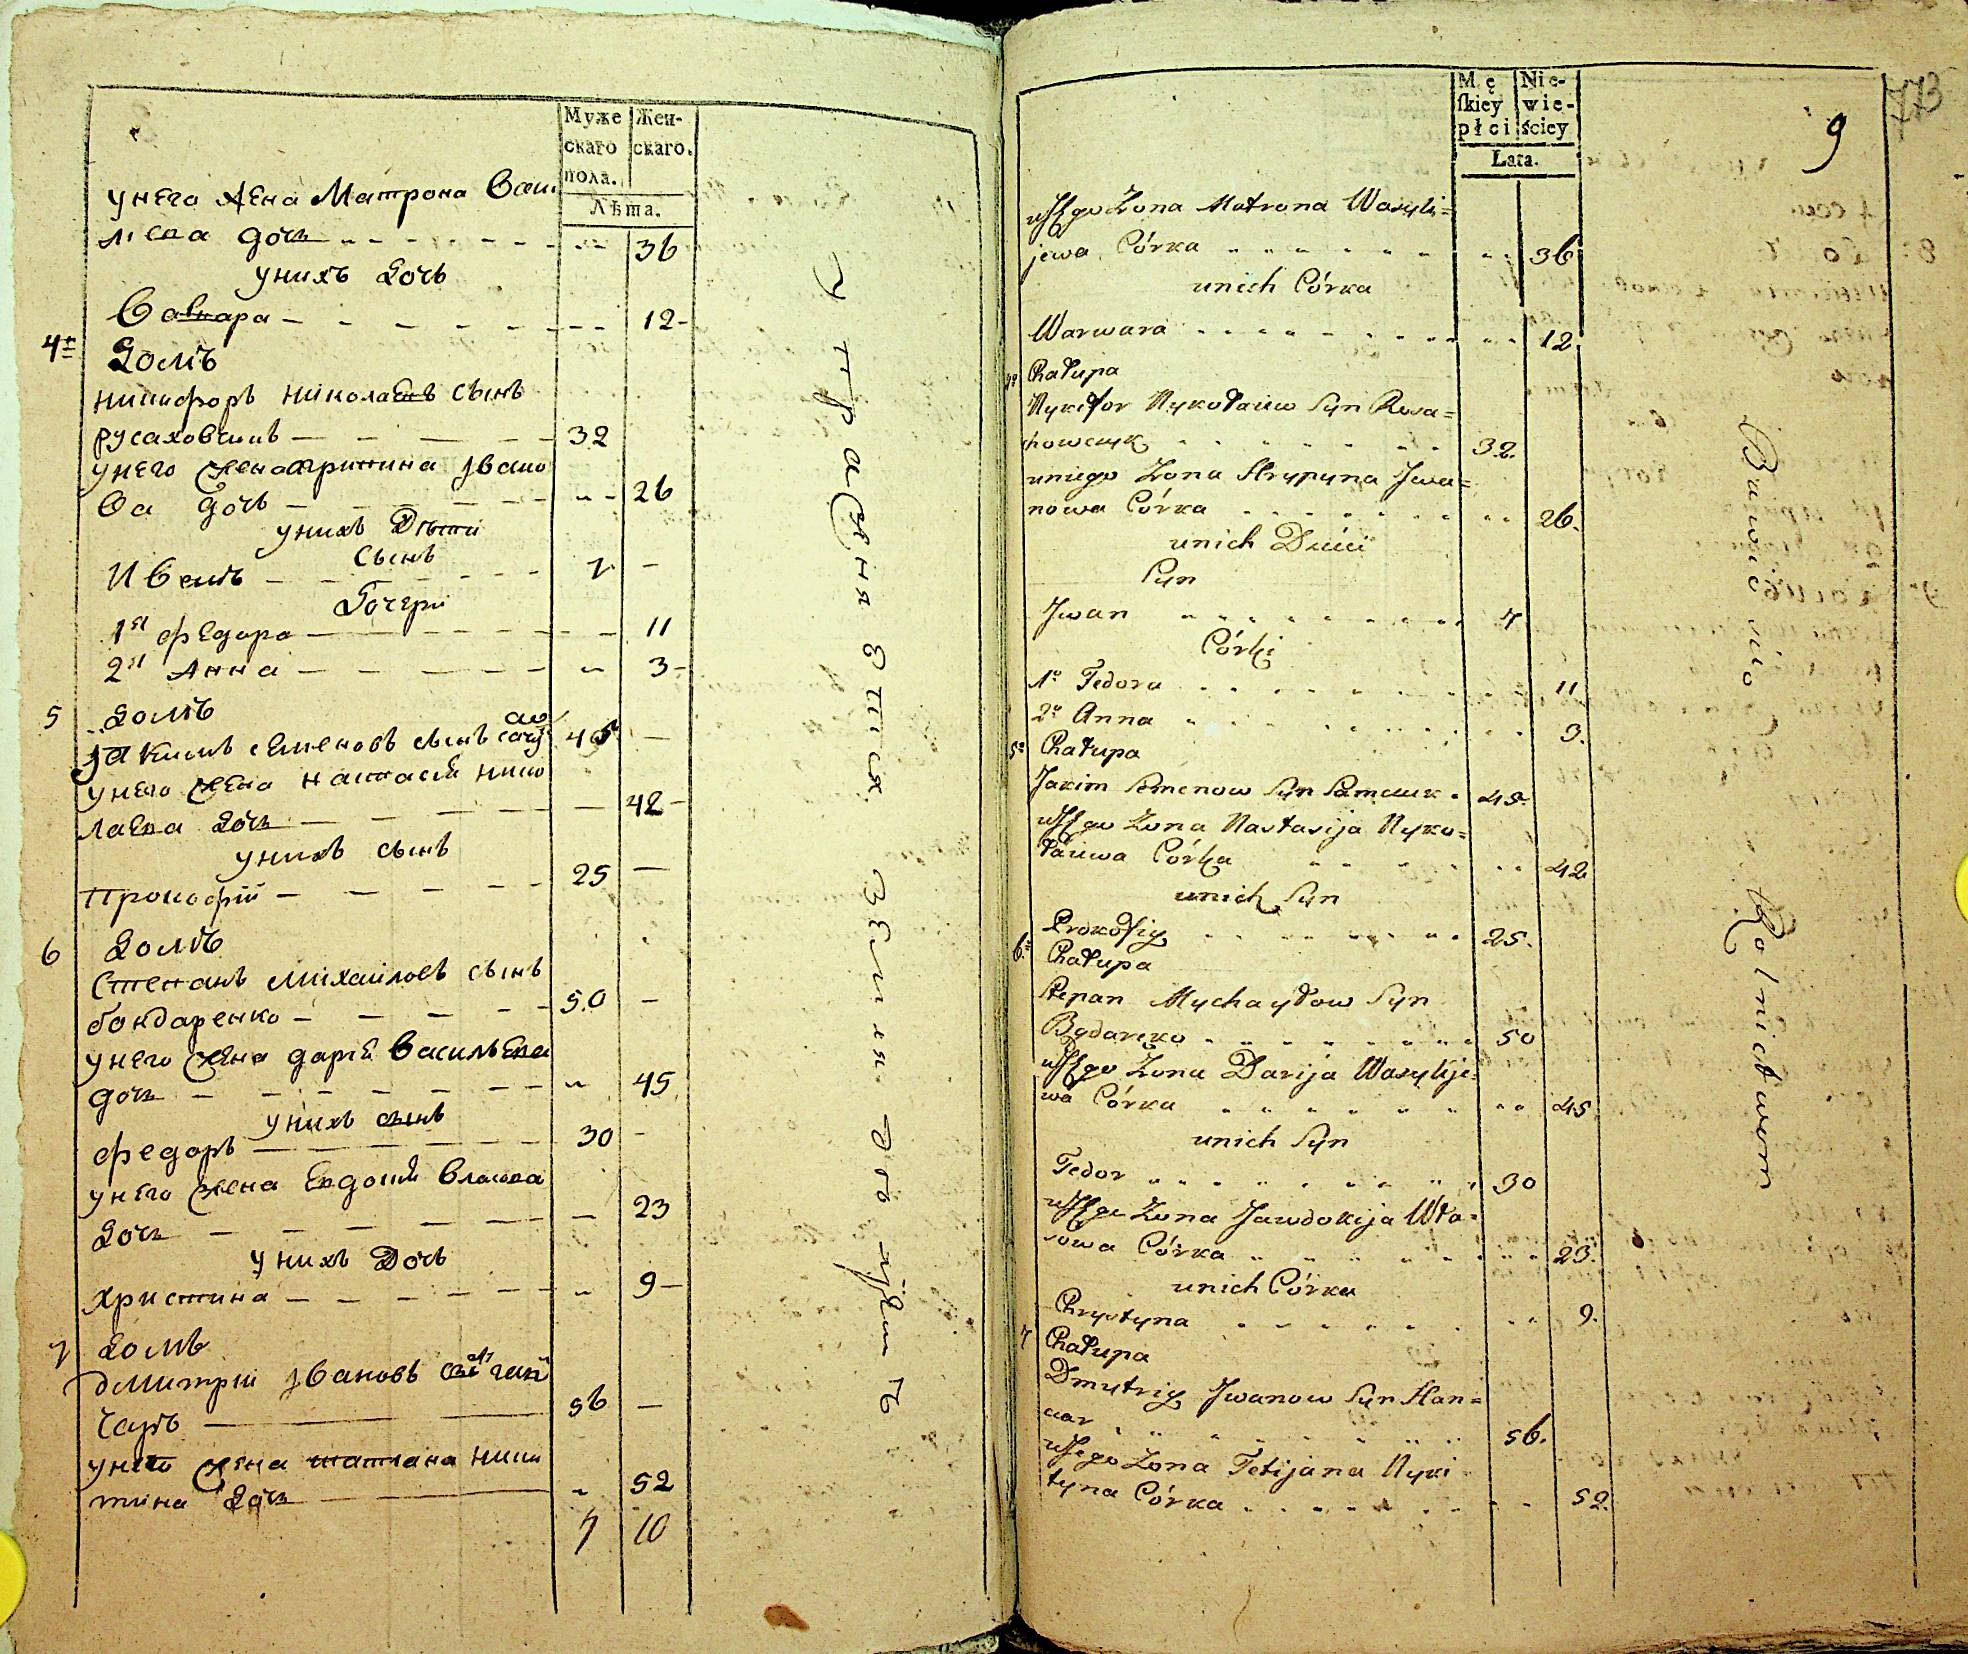 Муже
скаго
пола.
Жен-
скаго.
Лѣта.
унего жена Матрона Васи
лиева дочь 36
унихъ Дочь
Варвара 12
4 Домъ
никифоръ николаевъ сынъ
русаховчикъ 32
унего жена Агрипина Ивано
ва дочь 26
унихъ Дѣти
Сынъ
Иванъ 7
Дочери
1я федора 11
2я Анна 3
5 Домъ
Якимъ семеновъ сынъ 45
унего жена настасия нико
лаева дочь 42
унихъ сынъ
Прокофій 25
6 Домъ
Степанъ михайловъ сынъ
бондаренко 50
унего жена дария васильева
дочь 45
унихъ сынъ
федоръ 30
унего жена Евдокия власова
дочь 23
унихъ Дочь
христина 9
7 домъ
дмитрій Ивановъ сынъ ган
чаръ 56
унего жена татиана ники
тина дочь 52
7 10
Упражняется земле дѣл
Mę
skiey
płci
Nie-
wie-
ściey
Lata.
9
773
uJego Zona Matrona Wasyli=
jewa Córka 36
unich Córka
Warwara 12.
4o Chałupa
Nykifor Nykołaiw Syn Rusa=
howczyk 32.
uniego Zona Hrypyna Jwa=
nowa Córka 26.
unich Dzieci
Syn
Jwan 7
Córki
1o Fedora 11
2o Anna 3.
5o Chałupa
Jakim Semenow Syn Samczuk 45.
uJego Zona Nastasija Nyko=
łaiwa Córka 42
unich Syn
Prokofiy 25.
6o Chałupa
Stepan Mychayłow Syn
Bądaręko 50
uJego Zona Darija Wasylije=
wa Córka 45
unich Syn
Fedor 30
uJego Zona Jawdokija Wła=
sowa Córka 23.
unich Córka
Chrystyna 9.
7 Chałupa
Dmytriy Jwanow Syn Han=
czar 56.
uJego Zona Tetijana Nyki
tyna Córka 52.
Bawić się Rolnictwem